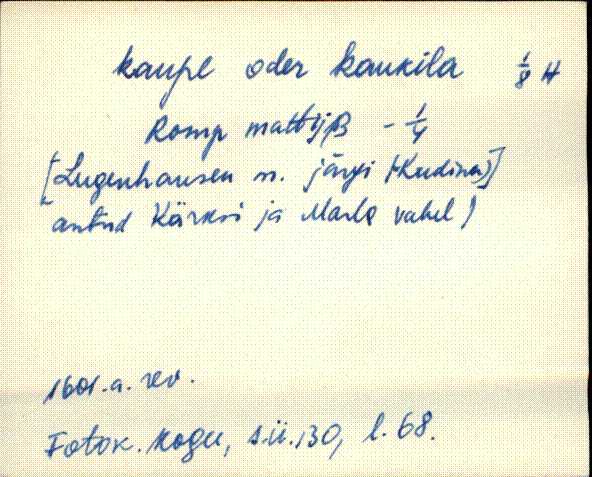 kaupe oder kaukila 1/8 H
Romp mattijß - 1/4
[Lugenhausen m. järgi (Kudina)]
antud Kärksi ja Marla vahel)
1601.a. rev.
Fotok. kogu, s.ü. 130, l. 68.